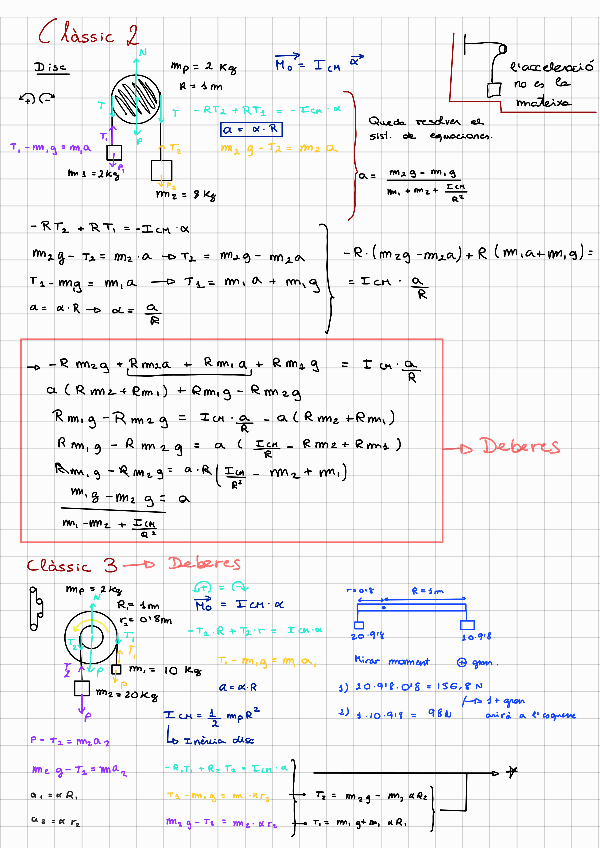 Clàssic 2
Disc
mp = 2 Kg
R = 1 m
M₀ = I CM α
l'acceleració
no és la
mateixa
N
T
T
P
-RT₂ + RT₁ = -I CM · α
a = α · R
T₁ - m₁g = m₁a
T₁
T₂
m₂g - T₂ = m₂a
P₁
P₂
m1 = 2 kg
m₂ = 8 kg
Queda resoldre el
sist. de equaciones.
a = m₂g - m₁g / m₁ + m₂ + I CM / R²
-RT₂ + RT₁ = -I CM · α
m₂g - T₂ = m₂ · a → T₂ = m₂g - m₂a
T₁ - m₁g = m₁a → T₁ = m₁a + m₁g
a = α · R → α = a / R
-R · (m₂g - m₂a) + R (m₁a + m₁g) =
= I CM · a / R
→ -R m₂g + R m₂a + R m₁a + R m₁g = I CM · a / R
a (R m₂ + R m₁) + R m₁g - R m₂g
R m₁g - R m₂g = I CM · a / R - a (R m₂ + R m₁)
R m₁g - R m₂g = a ( I CM / R - R m₂ + R m₁ )
R m₁g - R m₂g = a · R ( I CM / R² - m₂ + m₁ )
m₁g - m₂g / m₁ - m₂ + I CM / R² = a
→ Deberes
Clàssic 3 → Deberes
mp = 2 kg
R₁ = 1 m
r₂ = 0'8 m
N
P
m₁ = 10 kg
m₂ = 20 kg
P
M₀ = I CM · α
-T₂ · R + T₂ · r = I CM · α
T₁ - m₁g = m₁a₁
a = α · R
I CM = 1/2 mp R²
↳ Inèrcia disc
r = 0'8
R = 1 m
20 · 9'8
10 · 9'8
Mirar moment ⊕ gran.
1) 20 · 9'8 · 0'8 = 156,8 N
↳ 1 + gran
2) 1 · 10 · 9'8 = 98 N
anirà a l'esquerre
P - T₂ = m₂a₂
m₂g - T₂ = ma₂
a₁ = α R₁
a₂ = α r₂
-R₁T₁ + R₂T₂ = I CM · α
m₂g - T₂ = m₂ · α r₂
→ T₂ = m₂g - m₂ α R₂
→ T₁ = m₁g + m₁ α R₁